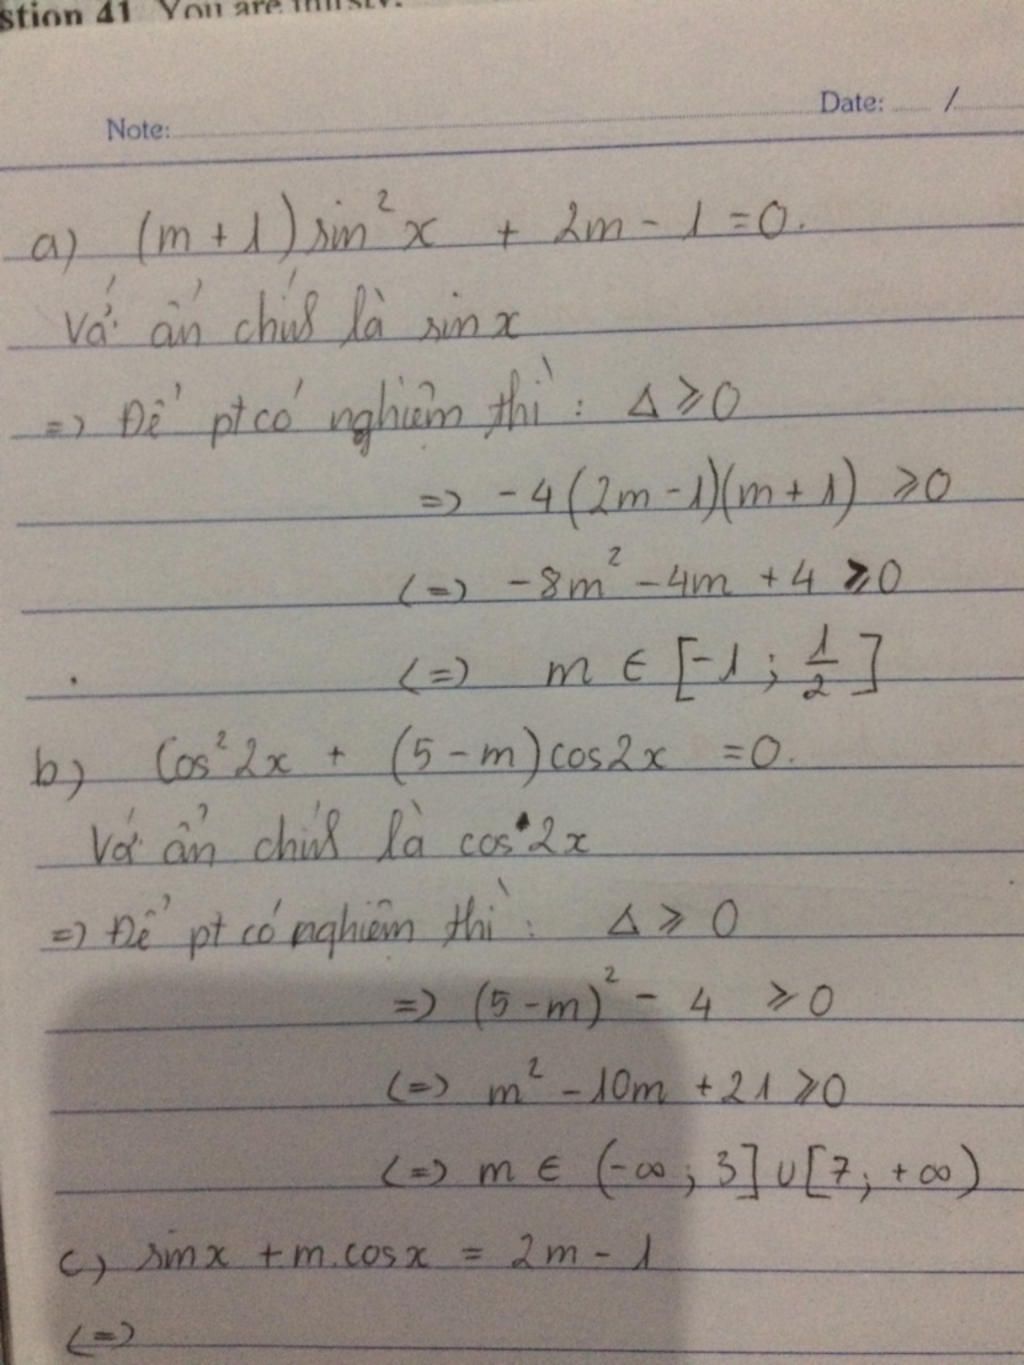 stion 41 You are thirsty.
Note: Date: /
a) (m + 1) sin²x + 2m - 1 = 0.
Với ẩn chính là sin x
=> Để pt có nghiệm thì : Δ ⩾ 0
=> - 4 (2m - 1)(m + 1) ⩾ 0
<=> - 8m² - 4m + 4 ⩾ 0
<=> m ∈ [-1 ; 1/2]
b) Cos²2x + (5 - m) cos2x = 0.
Với ẩn chính là cos 2x
=> Để pt có nghiệm thì : Δ ⩾ 0
=> (5 - m)² - 4 ⩾ 0
<=> m² - 10m + 21 ⩾ 0
<=> m ∈ (-∞ ; 3] ∪ [7 ; +∞)
c) sin x + m.cos x = 2m - 1
<=>